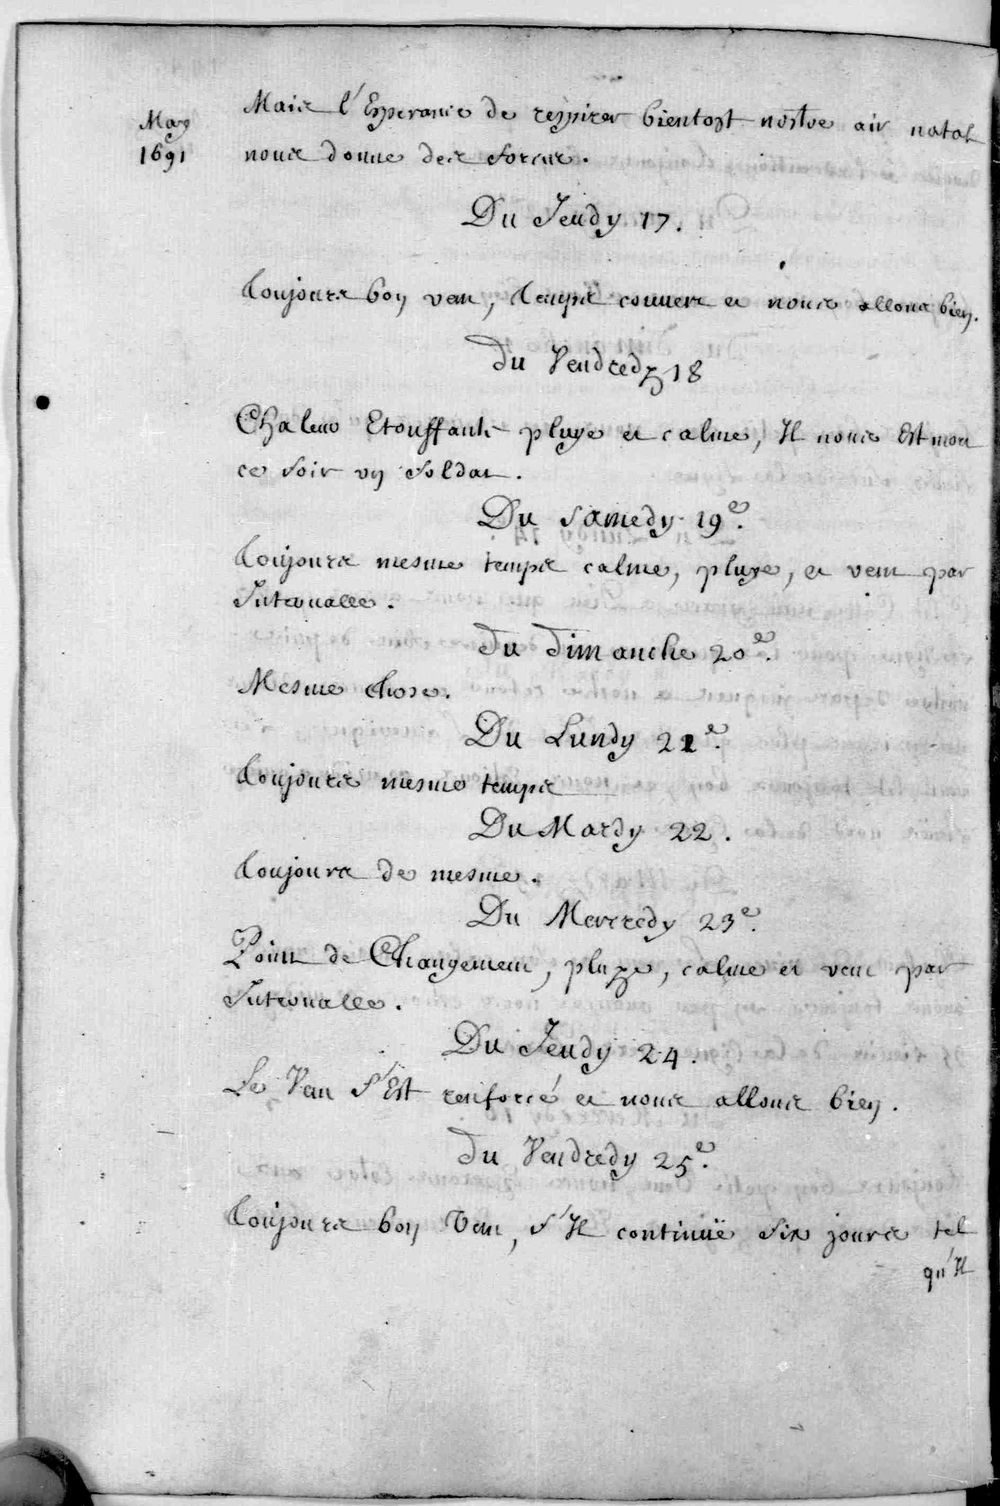 May
1691
Mais l'Esperance de respirer bientost nostre air natal
nous donne des forces.
Du Jeudy 17.
Toujours bon vent, temps couvert et nous allons bien.
Du Vendredy 18
Chaleur Etouffante pluye et calme, Il nous Est mort
ce soir un soldat.
Du Samedy 19e.
Toujours mesme temps calme, pluye, et vent par
Intervalle.
Du Dimanche 20e.
Mesme chose.
Du Lundy 21e.
Toujours mesme temps
Du Mardy 22.
Toujours de mesme.
Du Mercredy 23e.
Point de Changement, pluye, calme et vent par
Intervalle.
Du Jeudy 24.
Le Vent s'Est renforcé et nous allons bien.
Du Vendredy 25e.
Toujours bon Vent, s'Il continuë six jours tel
qu'Il